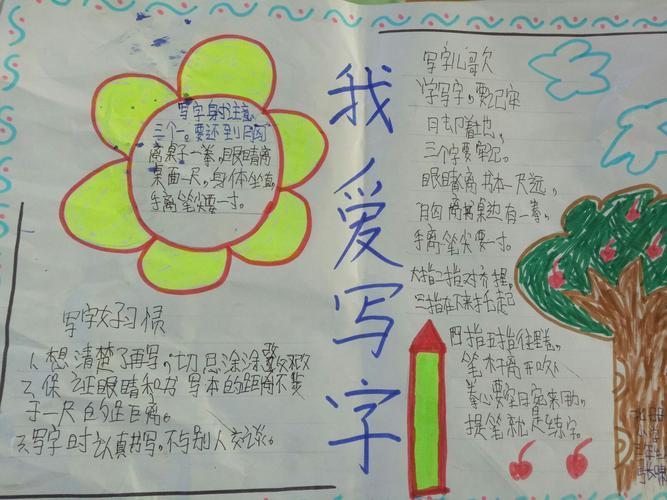 我爱写字
写字身时主意
三个一。要达到胸
离桌子一拳，眼睛离
桌面一尺，身体坐直，
手离笔尖要一寸。
写字好习惯
1、想清楚了再写，切忌涂涂改改
2、保证眼睛和书写本的距离不要
于一尺的距离。
3、写字时认真书写，不与别人交谈。
写字儿歌
学写字，要记牢
三个字要牢记。
眼睛离书本一尺远，
胸离书桌边有一拳，
手离笔尖要一寸。
大指二指对齐捏，
三指在下来托起
四指五指往里卷，
笔杆离开
拳心要空
提笔就是练字。